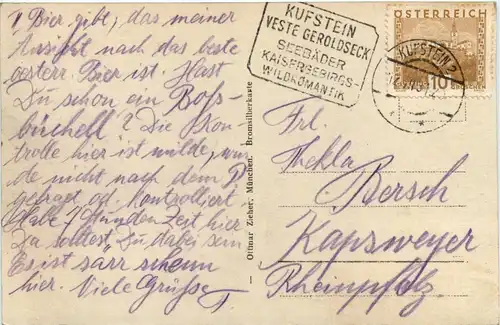 Bier gibt, das meiner
Ansicht nach das beste
oesterr. Bier ist. Hast
Du schon ein Boss-
büchell? Die Kon-
trolle hier ist milde, wur-
de nicht nach dem P
gefragt od. kontrolliert.
Habe 7 Stunden Zeit hier.
Da solltest Du dabei sein
Es ist sarr scheenn
hier. Viele Grüsse
KUFSTEIN
VESTE GEROLDSECK
SEEBÄDER
KAISERGEBIRGS-
WILDROMANTIK
ÖSTERREICH
KUFSTEIN 2
10
Ottmar Zieher, München. Bromsilberkarte
Frl
Thekla
Bersch
Kapsweyer
Rheinpfalz